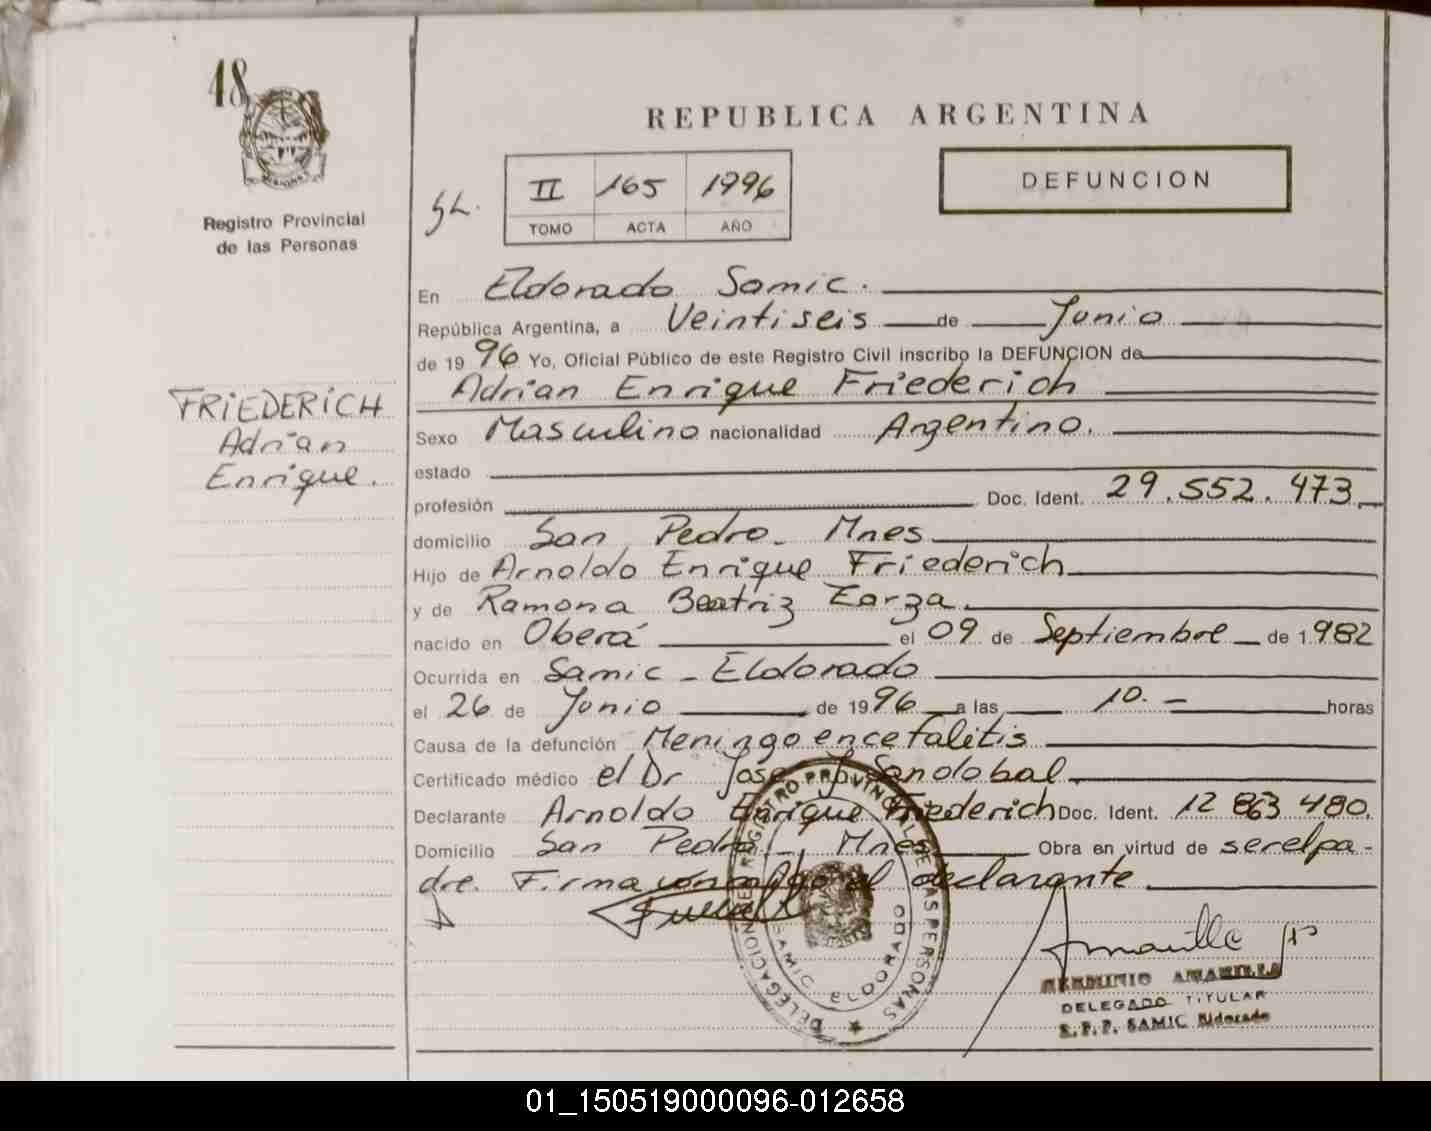 48
REPUBLICA ARGENTINA
DEFUNCION
II 165 1996
TOMO ACTA AÑO
Registro Provincial
de las Personas
En Eldorado Samic.
República Argentina, a Veintiseis de Junio
de 1996 Yo, Oficial Público de este Registro Civil inscribo la DEFUNCION de
Adrian Enrique Friederich
FRiEDERiCH
Adrian
Enrique.
Sexo Masculino nacionalidad Argentino.
estado
profesión Doc. Ident. 29.552.473
domicilio San Pedro - Mnes
Hijo de Arnoldo Enrique Friederich
y de Ramona Beatriz Zarza.
nacido en Oberá el 09 de Septiembre de 1.982
Ocurrida en Samic - Eldorado
el 26 de Junio de 1996 a las 10.- horas
Causa de la defunción Meningoencefalitis
Certificado médico el Dr Jose Sandobal.
Declarante Arnoldo Enrique Friederich Doc. Ident. 12 863 480.
Domicilio San Pedro - Mnes Obra en virtud de ser el pa-
dre. Firma conmigo el declarante
DELEGACION DEL REGISTRO PROVINCIAL DE LAS PERSONAS
SAMIC ELDORADO
HERMINIO AMARILLA
DELEGADO TITULAR
R.P.P. SAMIC Eldorado
01_150519000096-012658